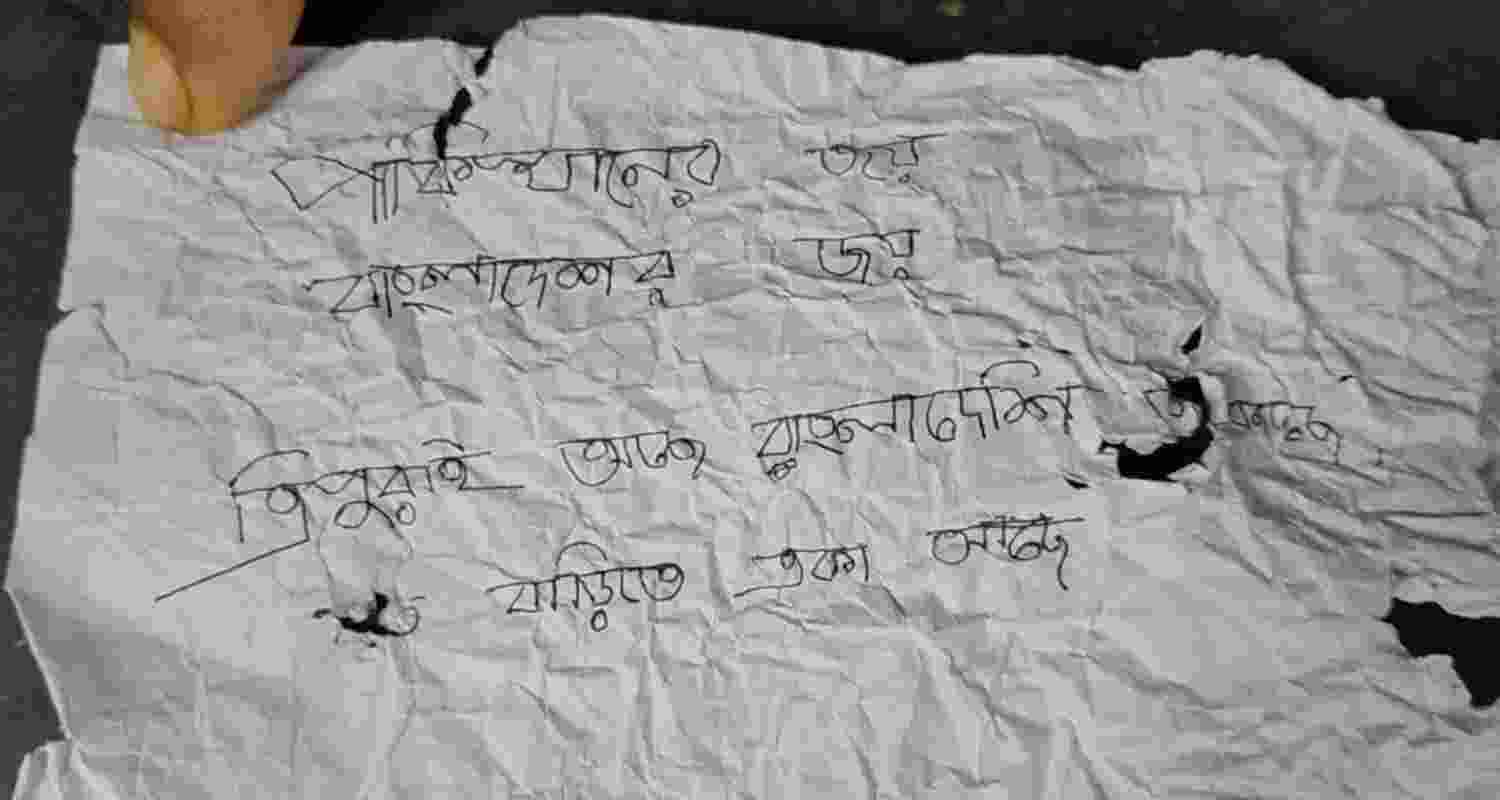 পাকিস্থানের জয়
বাংলাদেশর জয়
ত্রিপুরাই আছে বাংলাদেশি
বাড়িতে একা আছে